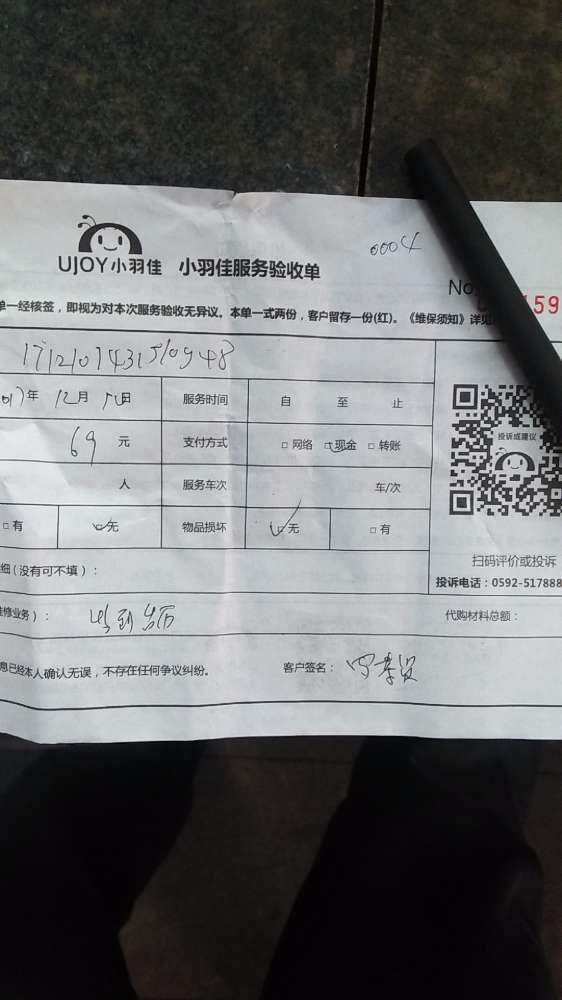 UJOY小羽佳 小羽佳服务验收单
0004
No.
159
单一经核签，即视为对本次服务验收无异议。本单一式两份，客户留存一份(红)。《维保须知》详见
年 12月 日 服务时间 自 至 止
69 元 支付方式 □ 网络 □ 现金 □ 转账
人 服务车次 车/次
□ 有 □ 无 物品损坏 □ 无 □ 有
投诉或建议
扫码评价或投诉
投诉电话：0592-517888
细（没有可不填）：
修业务）： 代购材料总额：
息已经本人确认无误，不存在任何争议纠纷。 客户签名：